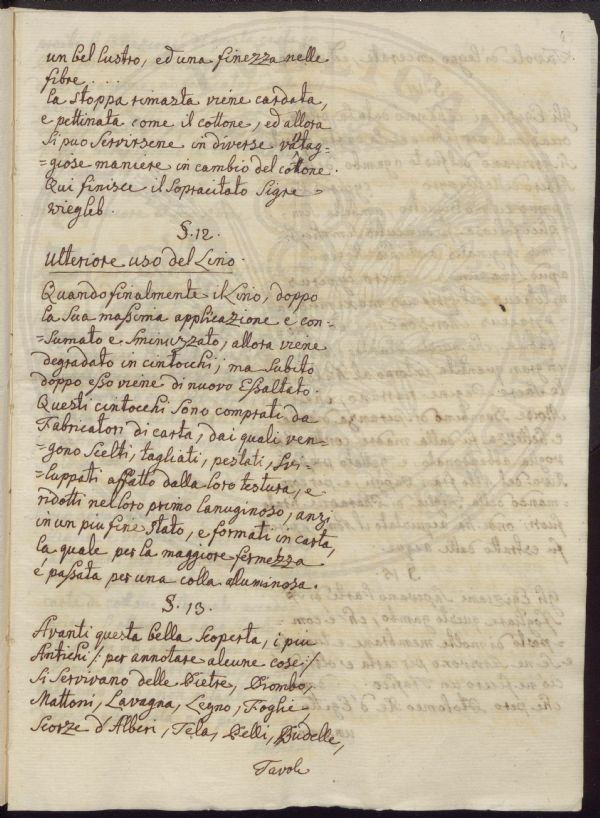 un bel lustro, ed una finezza nelle
fibre . . .
la stoppa rimasta viene cardata,
e pettinata come il cottone, ed allora
si può servirsene in diverse vātag=
=giose maniere in cambio del cottone.
Qui finisce il sopracitato Sigre =
wiegleb.
§. 12.
Ulteriore uso del Lino.
Quando finalmente il Lino, doppo
la sua massima applicazione e con=
=sumato e sminuzzato, allora viene
degradato in cintocchi; ma subito
doppo esso viene di nuovo essaltato.
Questi cintocchi sono comprati da
Fabricatori di carta, dai quali ven=
=gono scelti, tagliati, pestati, svi=
=luppati affatto dalla loro testura, e
ridotti nel loro primo lanuginoso, anzi
in un piu fine stato, e formati in carta,
la quale per la maggiore fermezza
é passata per una colla alluminosa.
§. 13.
Avanti questa bella scoperta, i piu
Antichi /: per annotare alcune cose :/
si servivano delle Pietre, Piombo,
Mattoni, Lavagna, Legno, Foglie,
Scorze d'Alberi, Tela, Pelli, Budelle,
Tavole